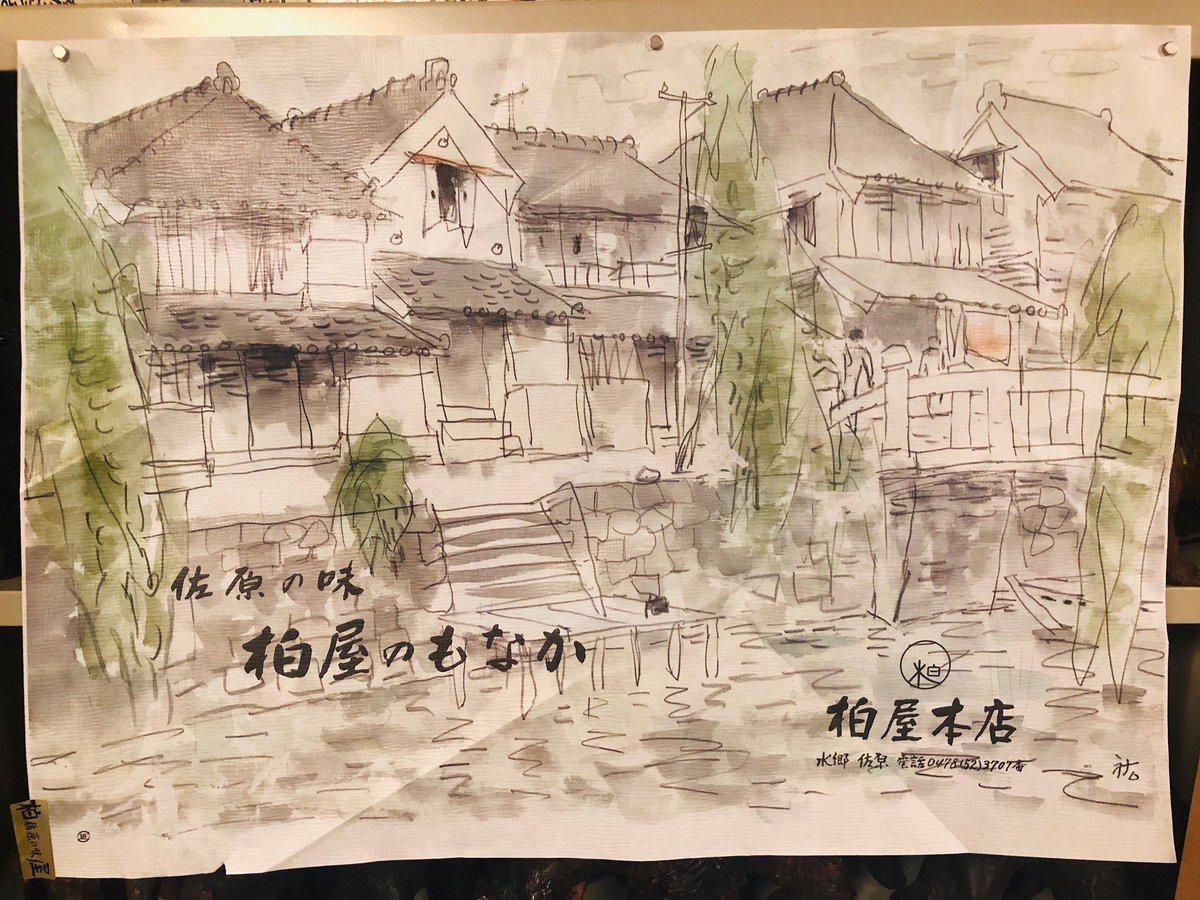 佐原の味
柏屋のもなか
柏
柏屋本店
水郷 佐原 電話0478(52)3707番
柏屋
佐原の味